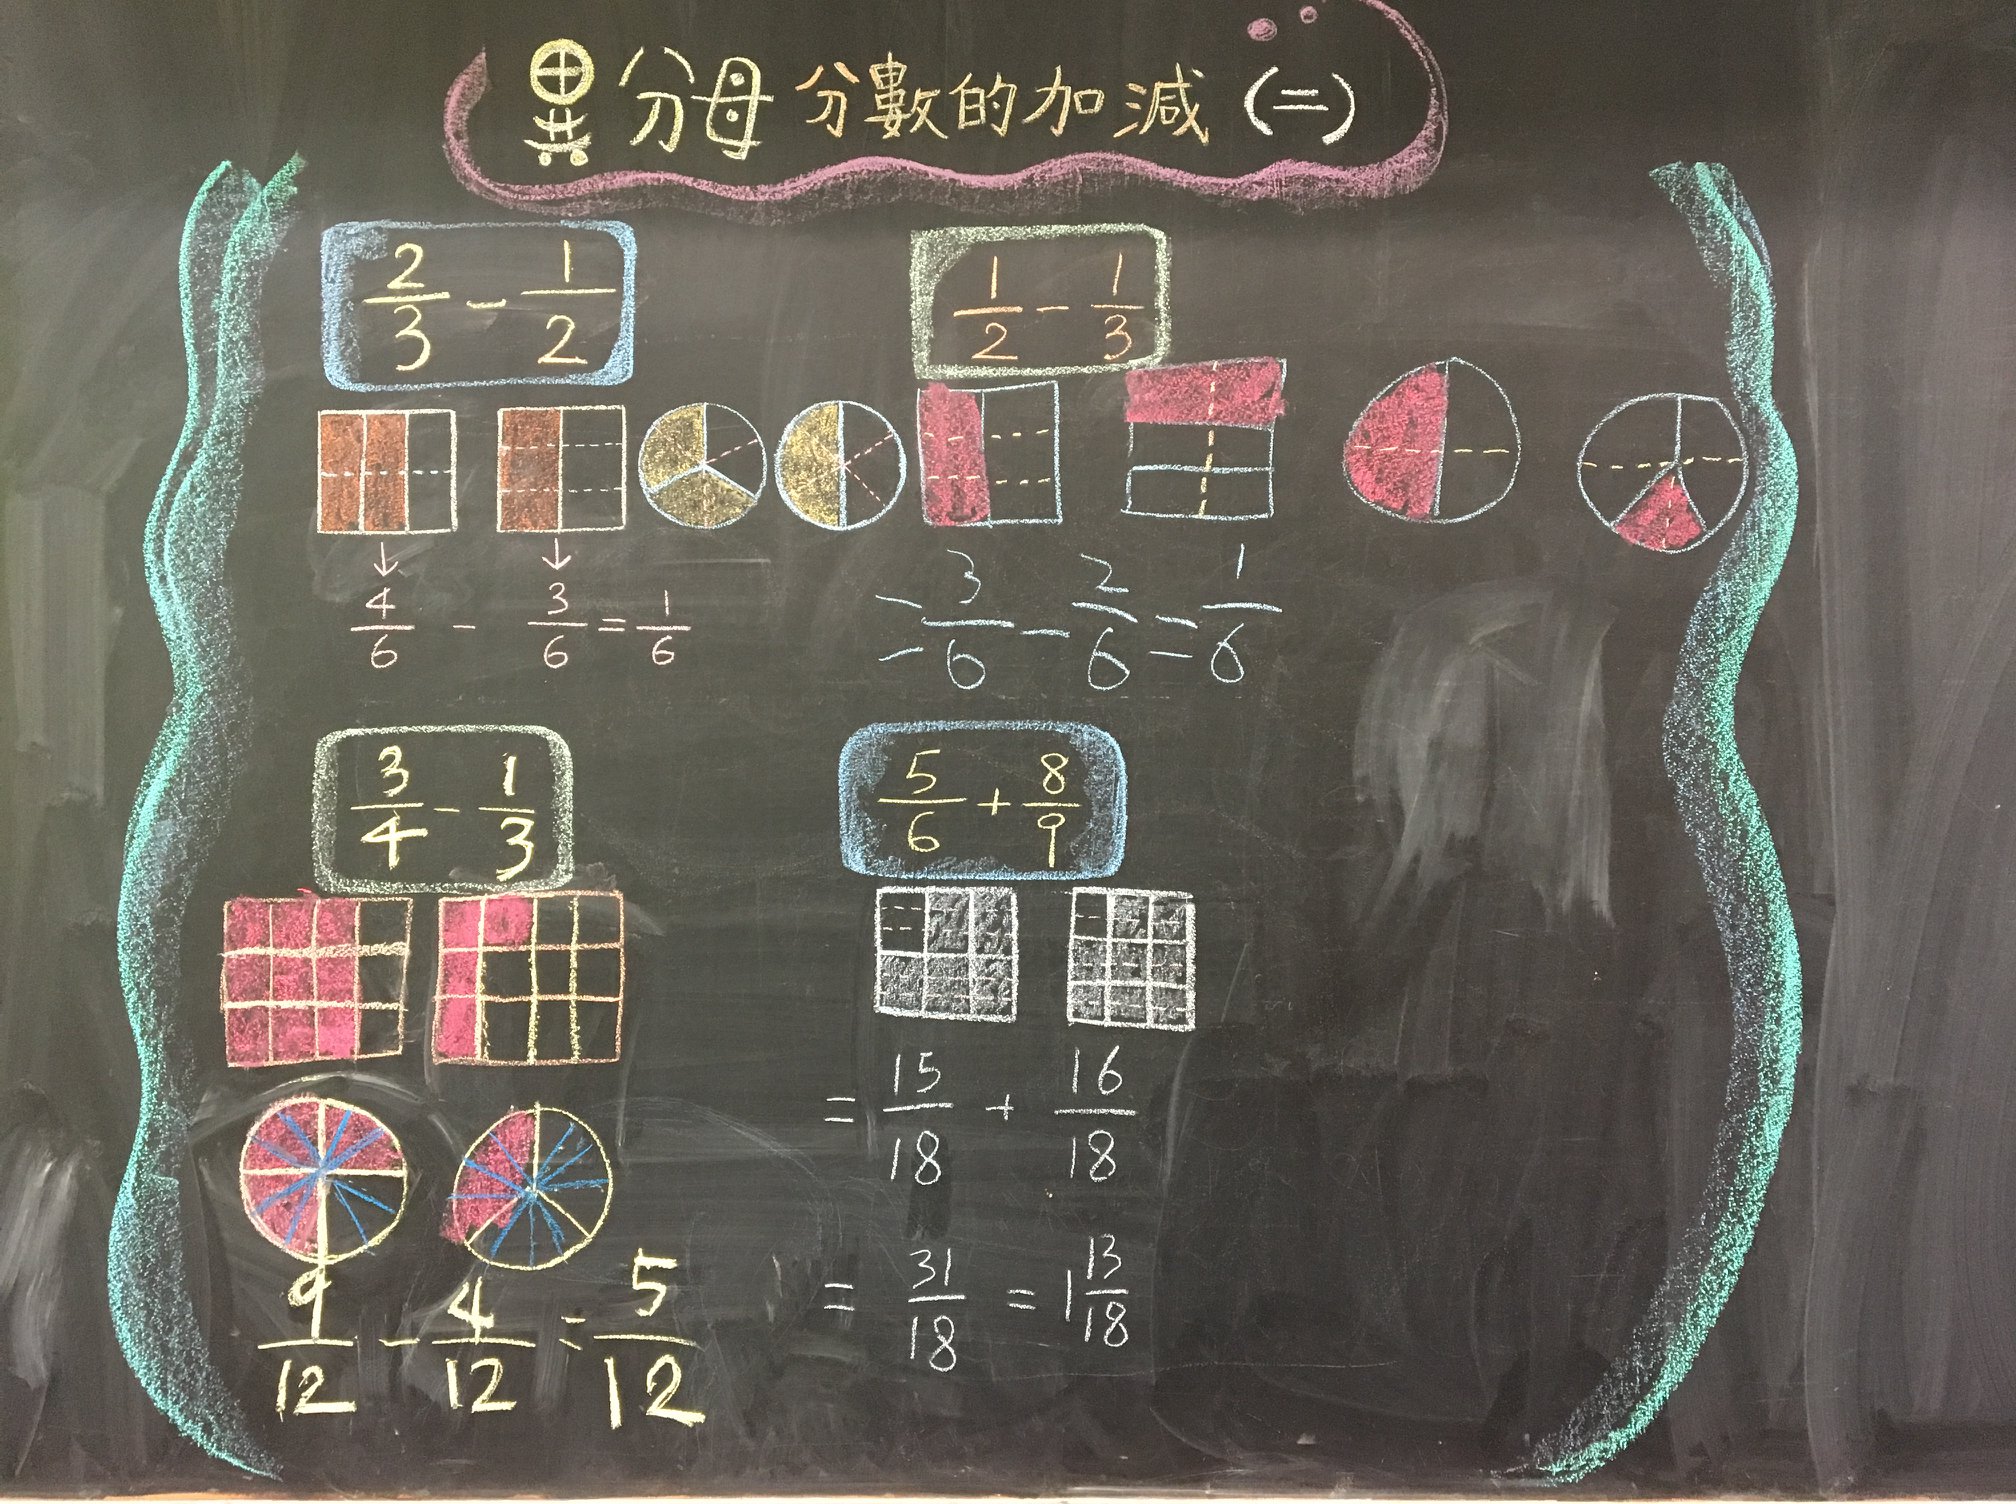 異分母分數的加減(二)
2/3 - 1/2
4/6 - 3/6 = 1/6
1/2 - 1/3
= 3/6 - 2/6 = 1/6
3/4 - 1/3
9/12 - 4/12 = 5/12
5/6 + 8/9
= 15/18 + 16/18
= 31/18 = 1 13/18